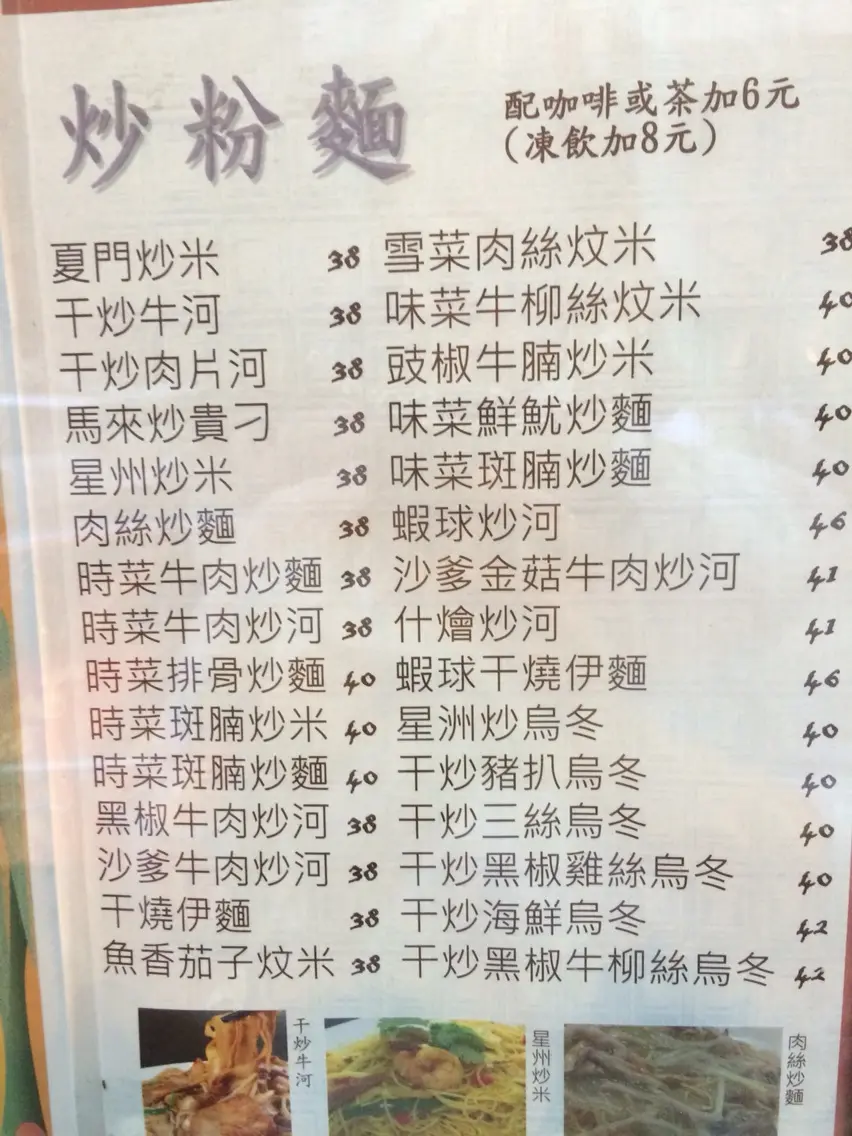 炒粉麵
配咖啡或茶加6元
(凍飲加8元)
夏門炒米 38
干炒牛河 38
干炒肉片河 38
馬來炒貴刁 38
星州炒米 38
肉絲炒麵 38
時菜牛肉炒麵 38
時菜牛肉炒河 38
時菜排骨炒麵 40
時菜斑腩炒米 40
時菜斑腩炒麵 40
黑椒牛肉炒河 38
沙爹牛肉炒河 38
干燒伊麵 38
魚香茄子炆米 38
雪菜肉絲炆米 38
味菜牛柳絲炆米 40
豉椒牛腩炒米 40
味菜鮮魷炒麵 40
味菜斑腩炒麵 40
蝦球炒河 46
沙爹金菇牛肉炒河 41
什燴炒河 41
蝦球干燒伊麵 46
星洲炒烏冬 40
干炒豬扒烏冬 40
干炒三絲烏冬 40
干炒黑椒雞絲烏冬 40
干炒海鮮烏冬 42
干炒黑椒牛柳絲烏冬 42
干炒牛河
星州炒米
肉絲炒麵